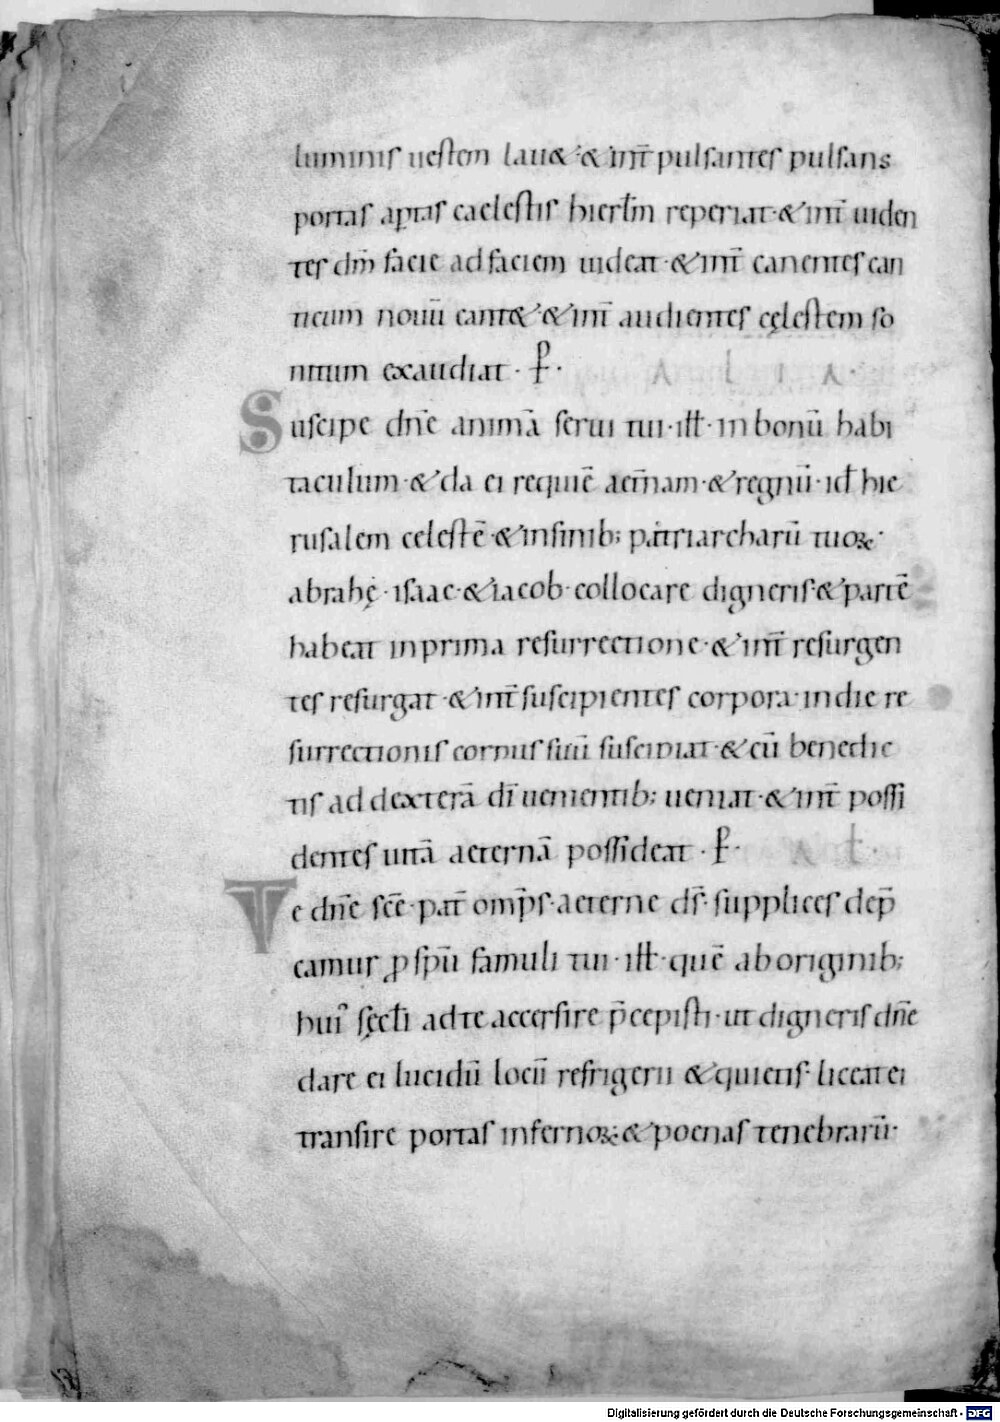 luminis uestem lauet · & int̄ pulsantes pulsans
portas aptas caelestis hierl̄m reperiat · & int̄ uiden
tes dm̄ facie ad faciem uideat · & int̄ canentes can
ticum nouū cantet · & int̄ audientes cęlestem so
nitum exaudiat · P ·
A L I A ·
Suscipe dn̄e animā serui tui · ill̄ · in bonū habi
taculum · & da ei requiē aet̄nam · & regnū · id̄ hie
rusalem celestē · & in sinib; patriarcharū tuoꝝ ·
abrahę · isaac · & iacob · collocare digneris · & partē
habeat in prima resurrectione · & int̄ resurgen
tes resurgat · & int̄ suscipientes corpora · in die re
surrectionis corpus suū suscipiat · & cū benedic
tis ad dexterā dī uenientib; ueniat · & int̄ possi
dentes uitā aeternā possideat · P ·
Te dn̄e sc̄e · pat̄ omp̄s · aeterne ds̄ · supplices dep̄
camur ꝓ sp̄u famuli tui · ill̄ · quē ab originib;
hui' sęcl̄i ad te accersire p̄cepisti · ut digneris dn̄e
dare ei lucidū locū refrigerii & quietis · liceat ei
transire portas infernoꝝ · & poenas tenebrarū ·
Digitalisierung gefördert durch die Deutsche Forschungsgemeinschaft - DFG